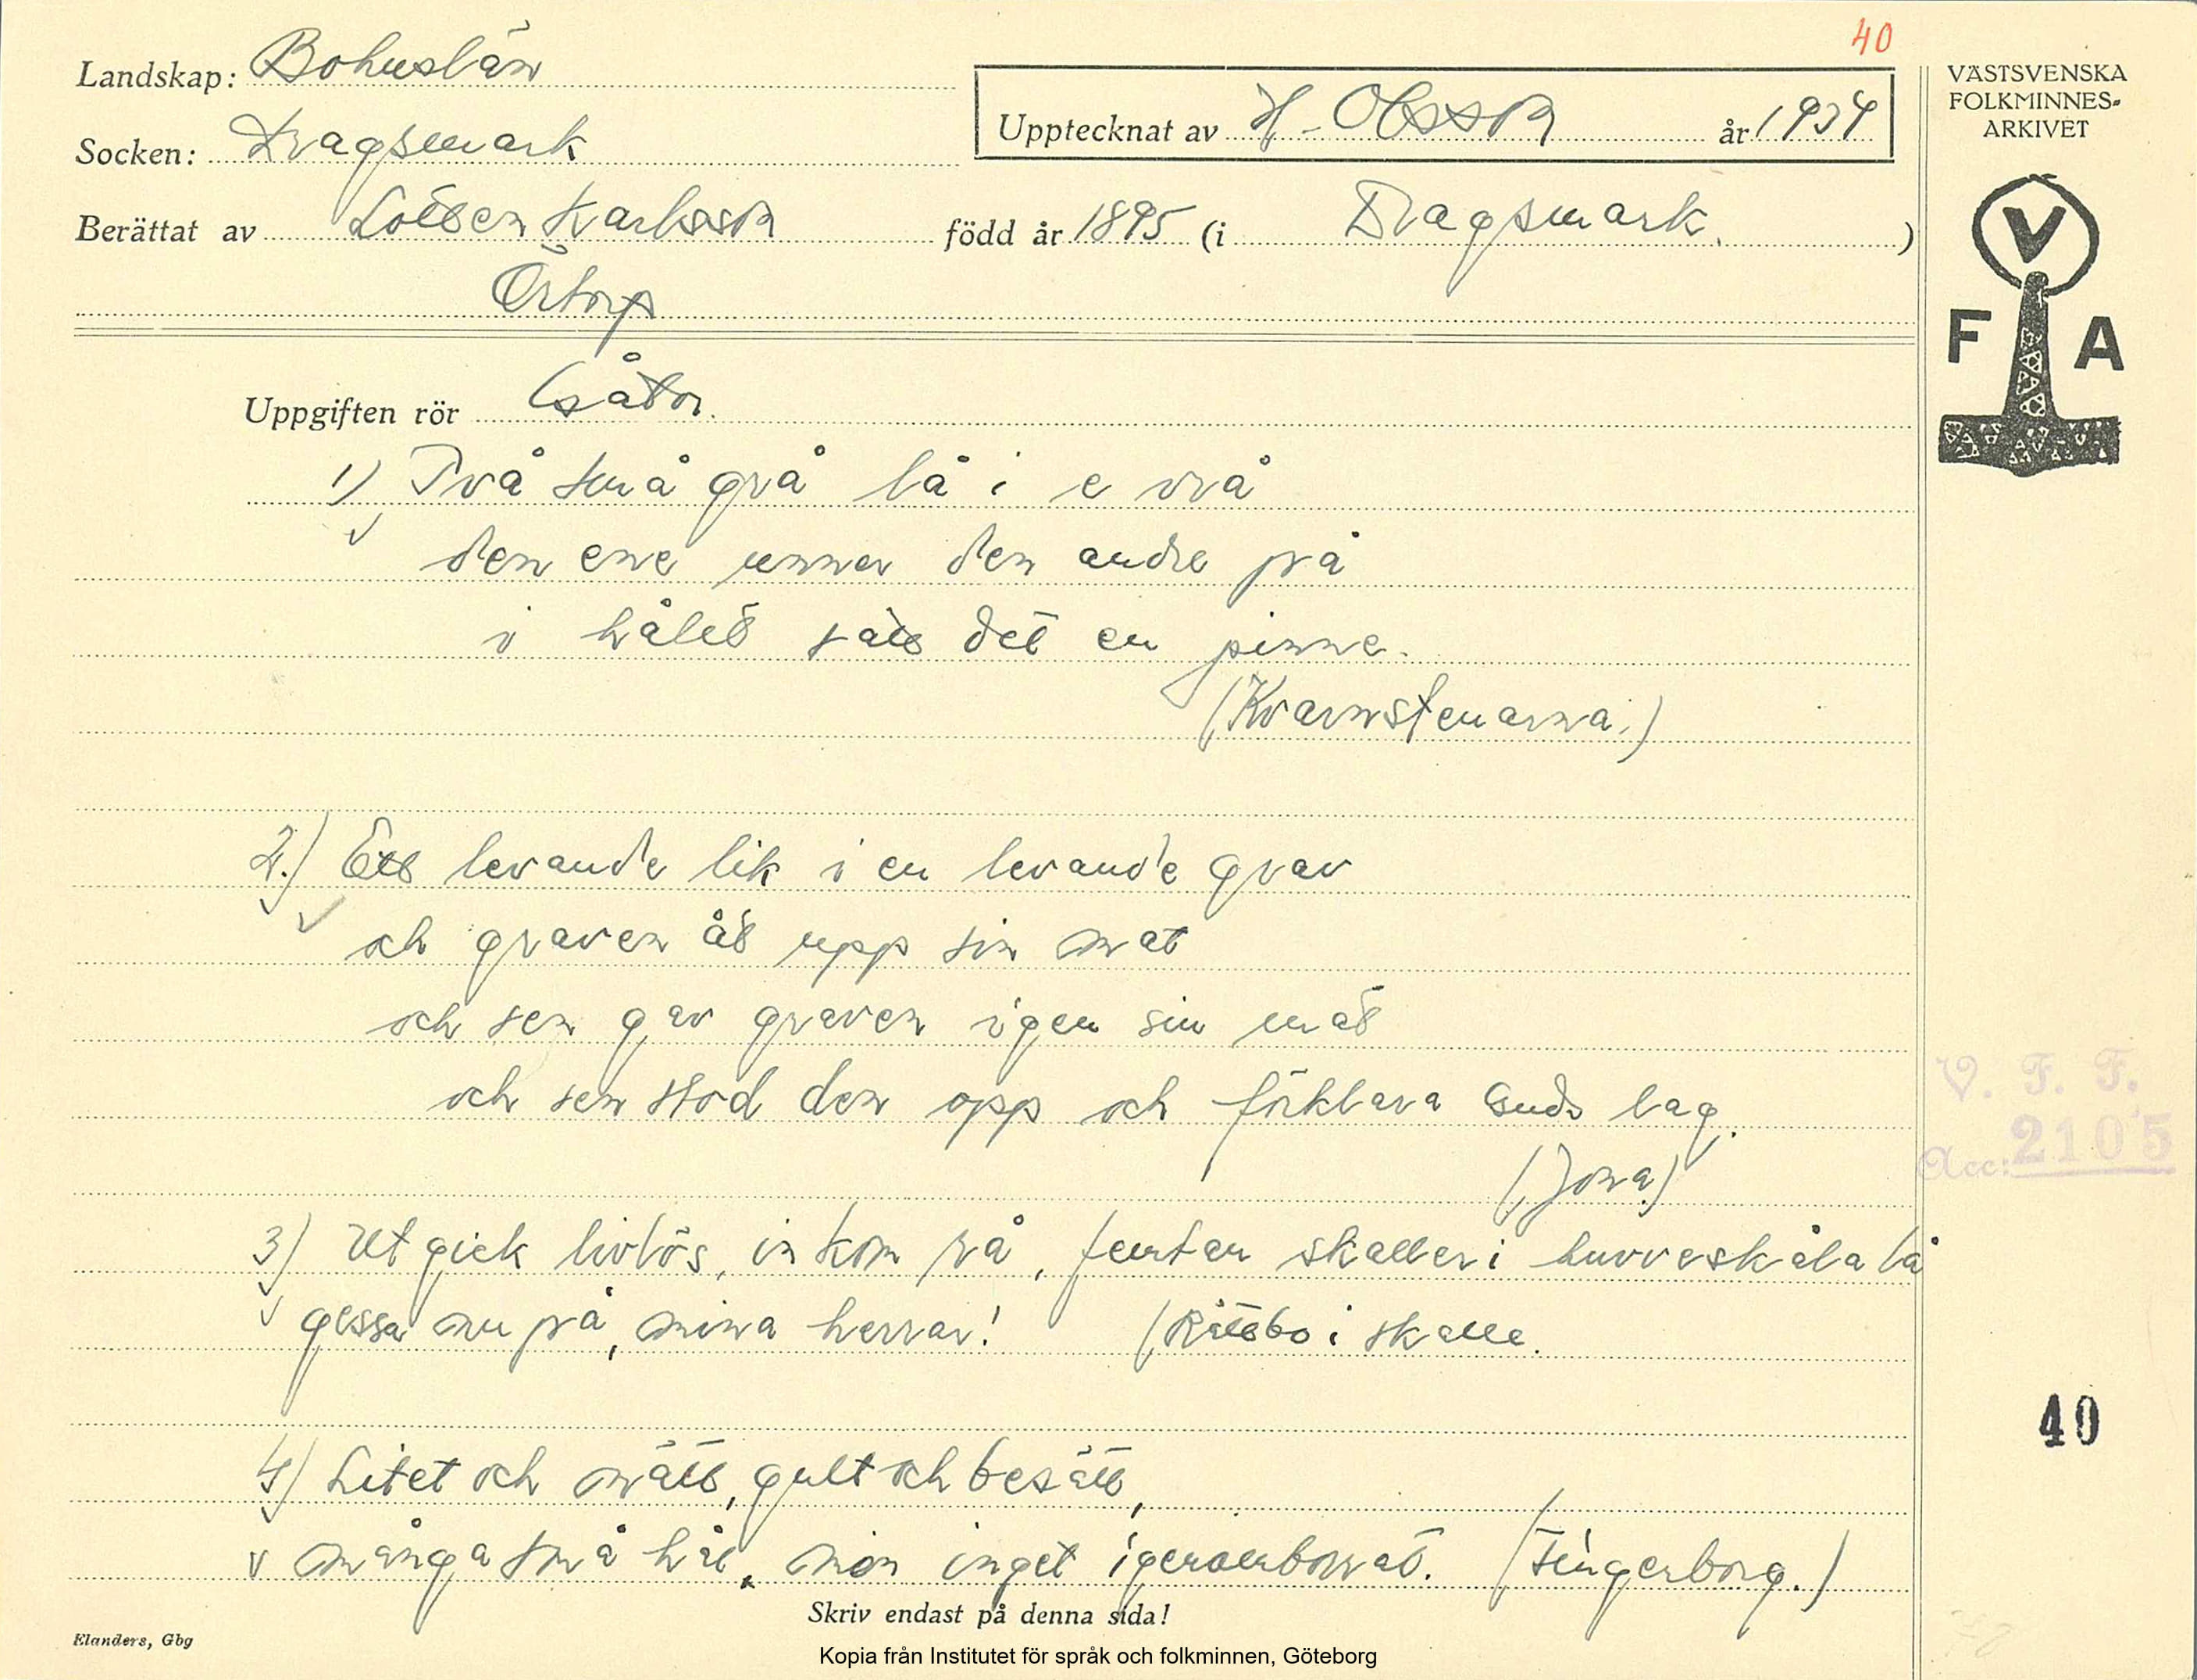 40
Landskap: Bohuslän
Upptecknat av H. Olsson år 1934
Socken: Dragsmark
Berättat av Karlsson född år 1895 (i Dragsmark.)
Örtorp
VÄSTSVENSKA
FOLKMINNES-
ARKIVET
V
F A
Uppgiften rör Gåtor.
1) Två små grå lå i e vrå
den ene den andre på
i hålet satt det en pinne.
(Kvarnstenarna.)
2.) Ett levande lik i en levande grav
och graven åt upp sin mat
och sen gav graven igen sin mat
och sen stod den opp och förklara Guds lag.
(Jona)
V. F. F.
Acc: 2105
3) Ut gick livlös, in kom rå, femtan skaller i hurveskåla lå
gessa nu på, mina herrar! (Råttbo i skalle.
40
4) Litet och nätt, gult och besätt,
många små hål, men inget igenomborrat. (Fingerborg.)
Skriv endast på denna sida!
Elanders, Gbg
Kopia från Institutet för språk och folkminnen, Göteborg